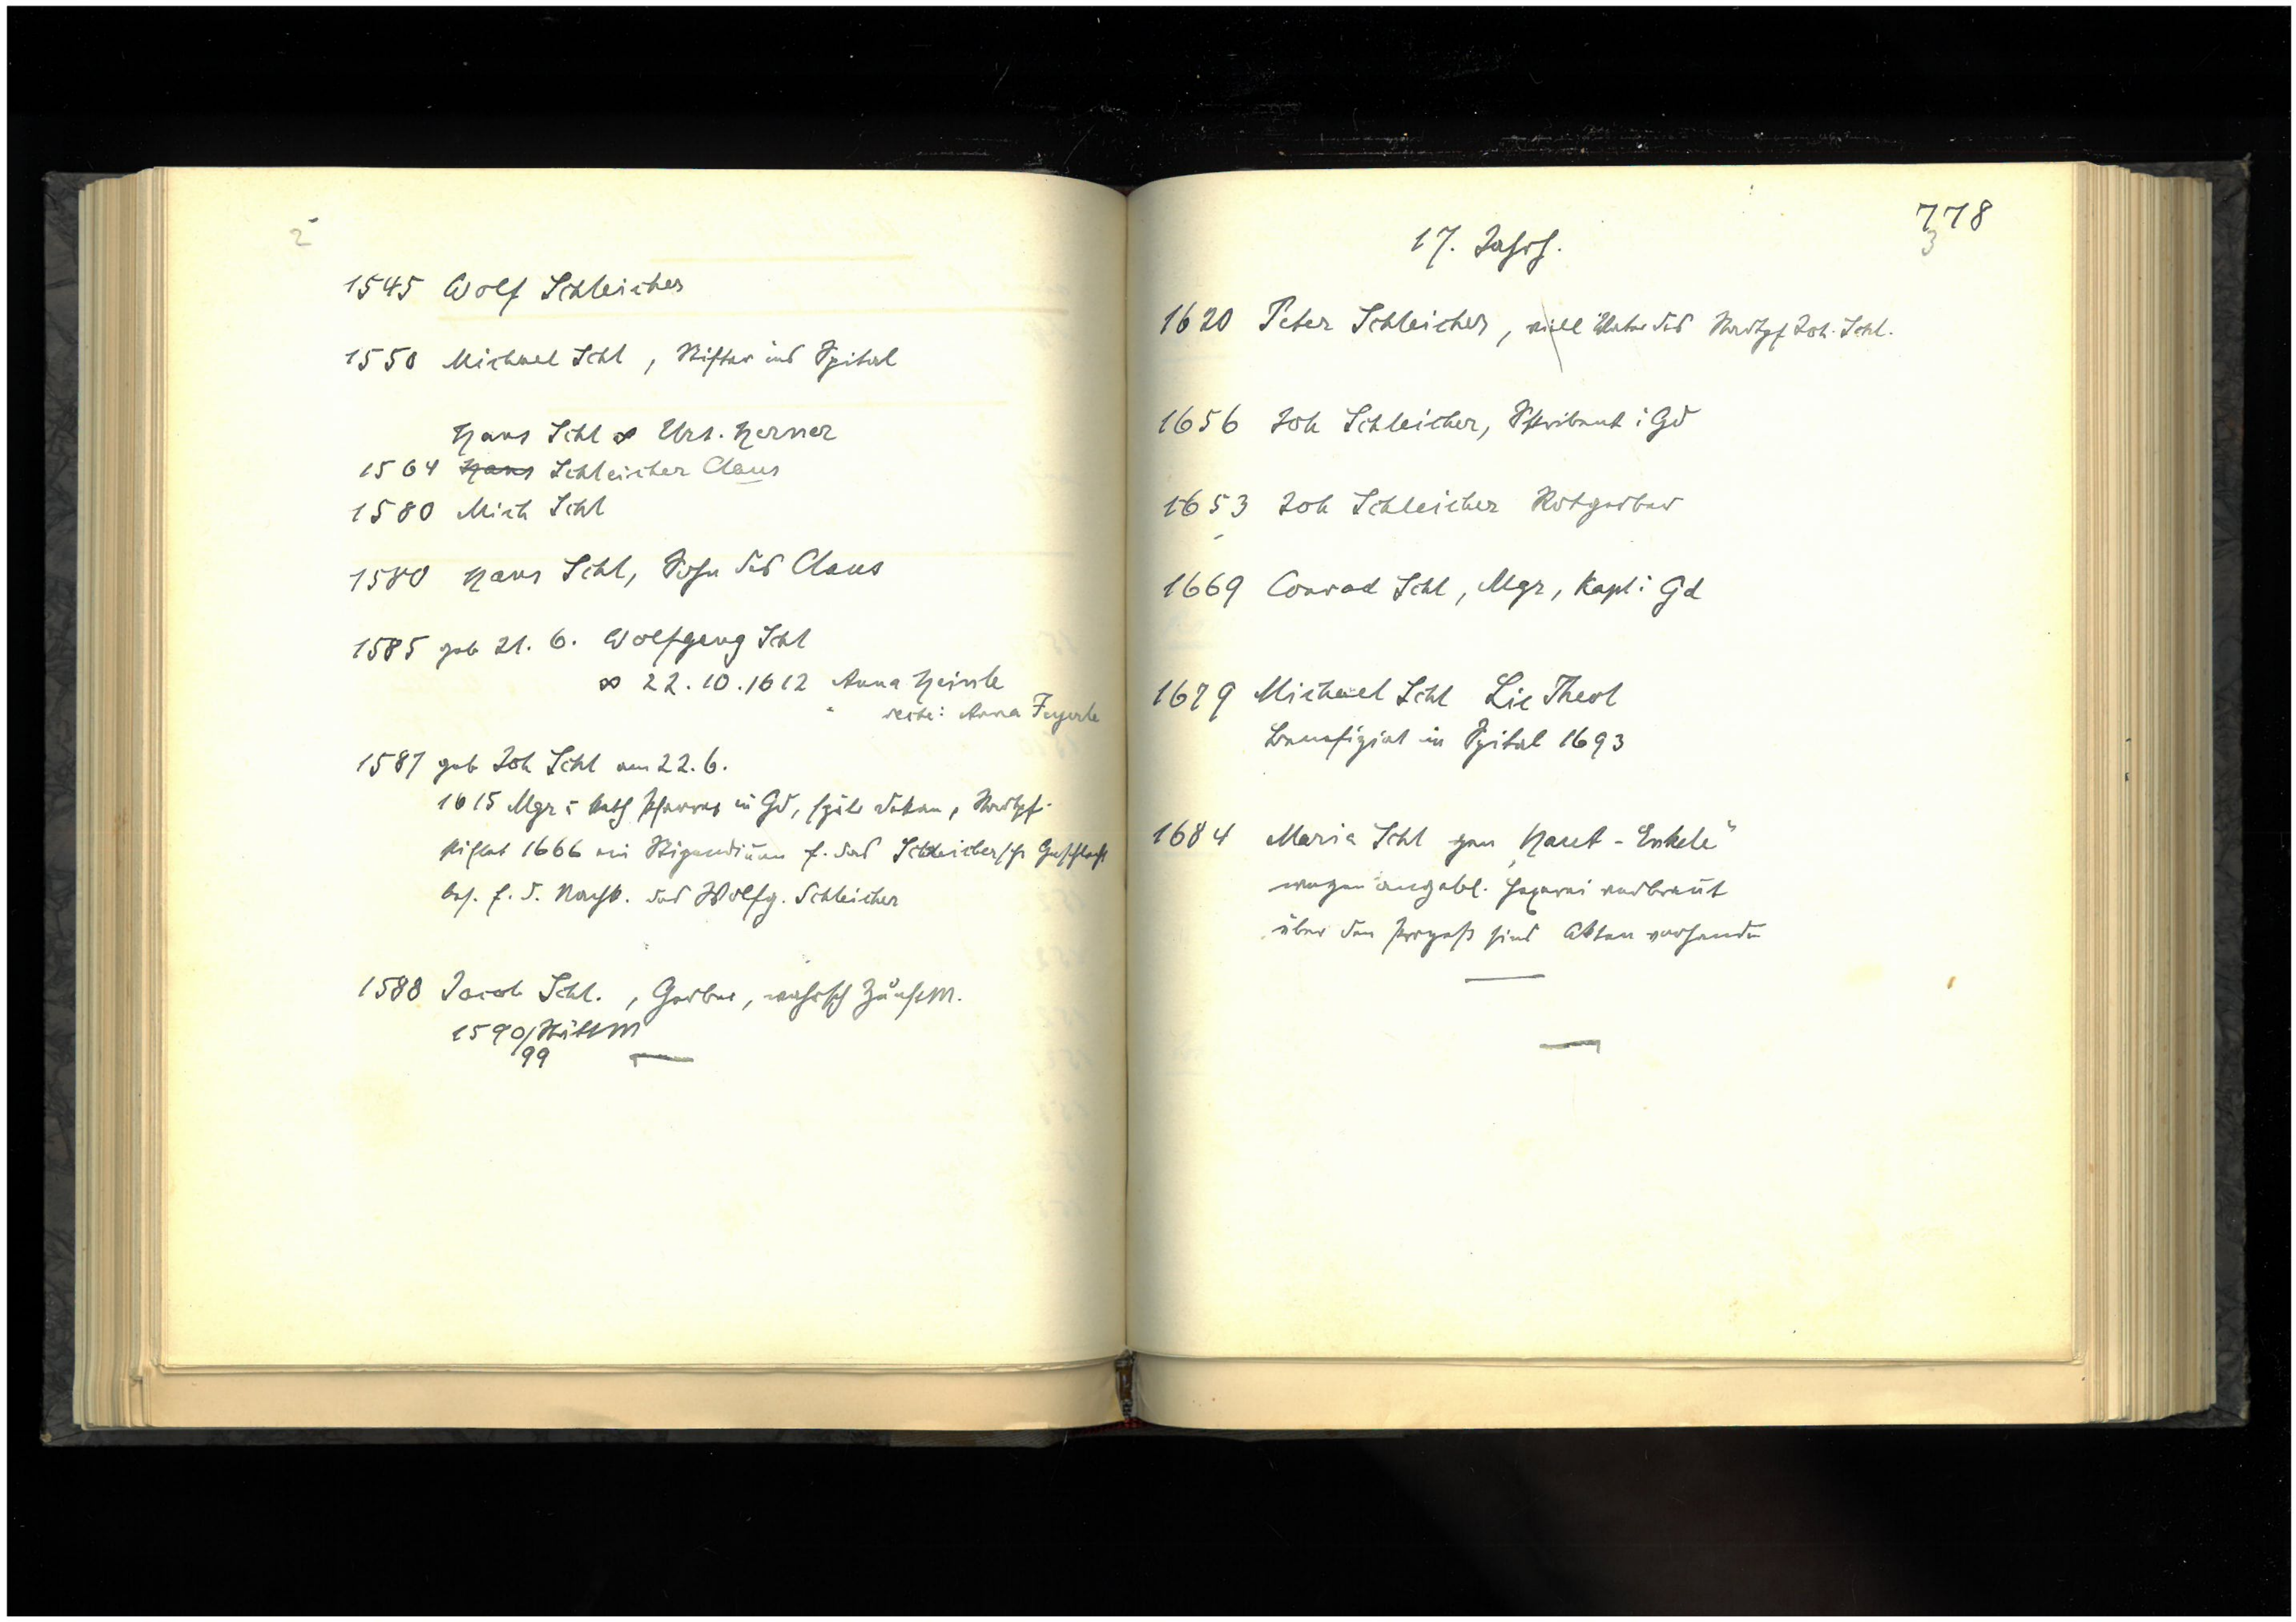 2
1545 Wolf Schleicher
1550 Michael Schl, Stifter ins Spital
Hans Schl ∞ Urs. Herner
1564 Hans Schleicher Claus
1580 Mich Schl
1580 Hans Schl, Sohn des Claus
1585 geb 21. 6. Wolfgang Schl
∞ 22.10.1612 Anna Heinle
recte: Anna
1587 geb Joh Schl am 22.6.
1615 Mgr kath Pfarrer in Gd, spät Dekan, Stadtpf.
stiftet 1666 ein Stipendium f. das Schleichersche Geschlecht
bes. f. d. Nachk. des Wolfg. Schleicher
1588 Jacob Schl., Gerber, wahrsch Zunftm.
1590/ Stättm
99
778
3
17. Jahrh.
1620 Peter Schleicher, viell Vater des Stadtpf Joh. Schl.
1656 Joh Schleicher, Skribent i Gd
1653 Joh Schleicher Rotgerber
1669 Conrad Schl, Mgr, Kapl i Gd
1679 Michael Schl Lic Theol
Benefiziat in Spital 1693
1684 Maria Schl gen „Haut-Enkele"
wegen angebl. Hexerei verbrannt
über den Prozeß sind Akten vorhanden